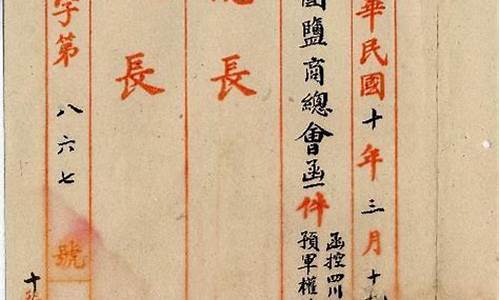 華民國十年三月十
國鹽商總會函一件
函控四川
預軍權
長
長
字第八六七號
十